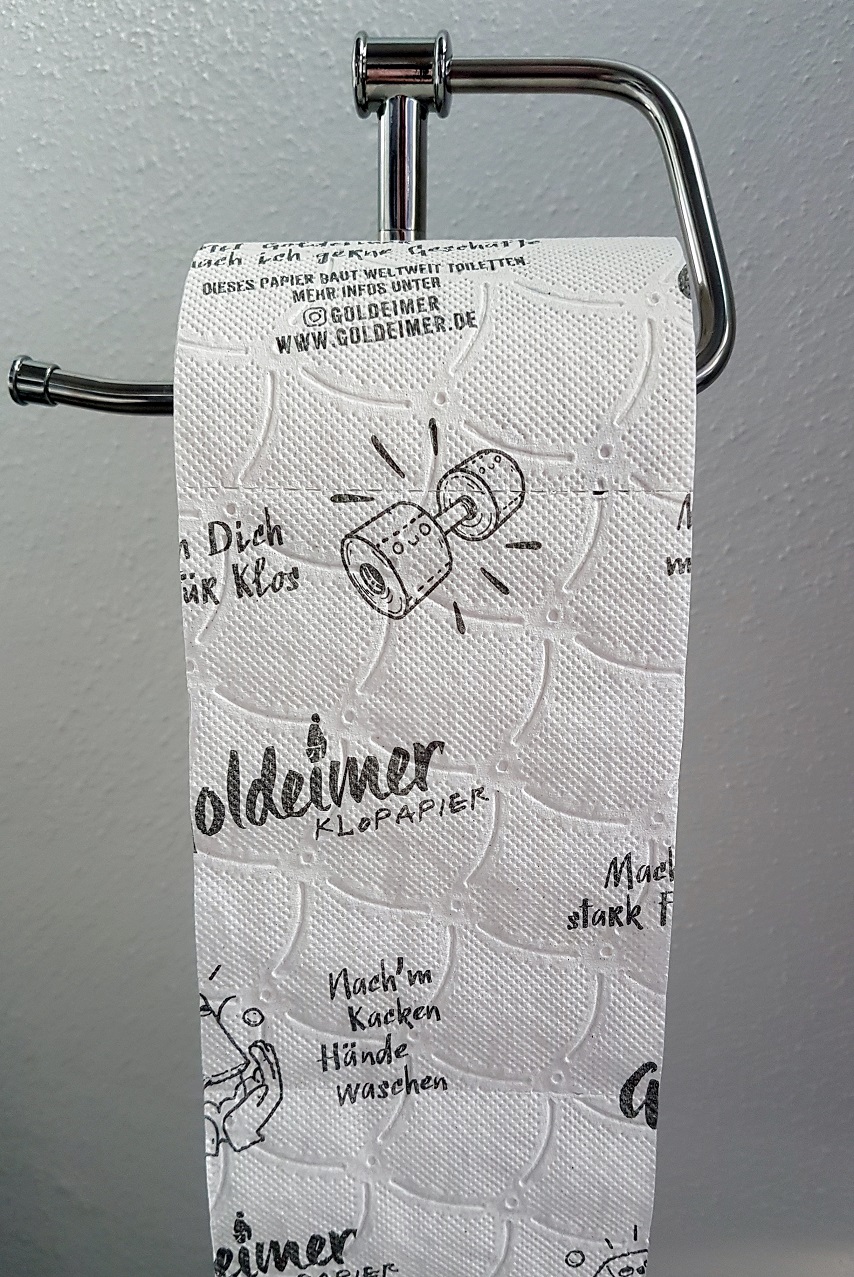 mach ich gerne Geschäfte
DIESES PAPIER BAUT WELTWEIT TOILETTEN.
MEHR INFOS UNTER
GOLDEIMER
WWW.GOLDEIMER.DE
n Dich
ür Klos
M
m
oldeimer
KLOPAPIER
Mach
stark F
Nach'm
Kacken
Hände
waschen
G
eimer
PAPIER